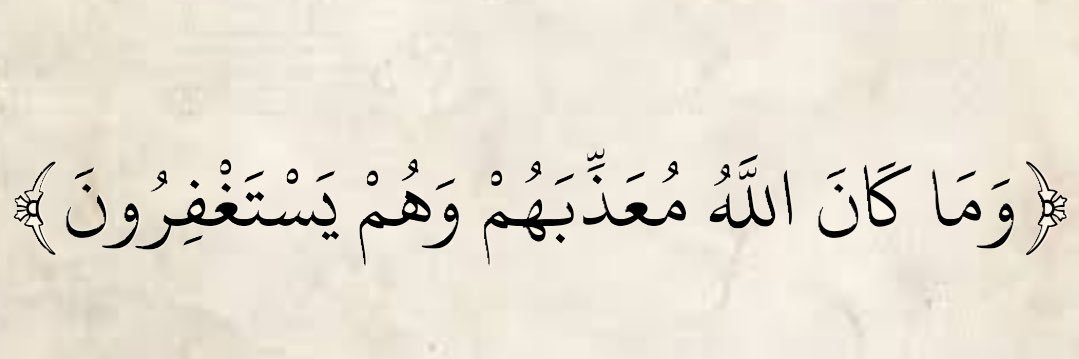 ﴿ وَمَا كَانَ اللَّهُ مُعَذِّبَهُمْ وَهُمْ يَسْتَغْفِرُونَ ﴾